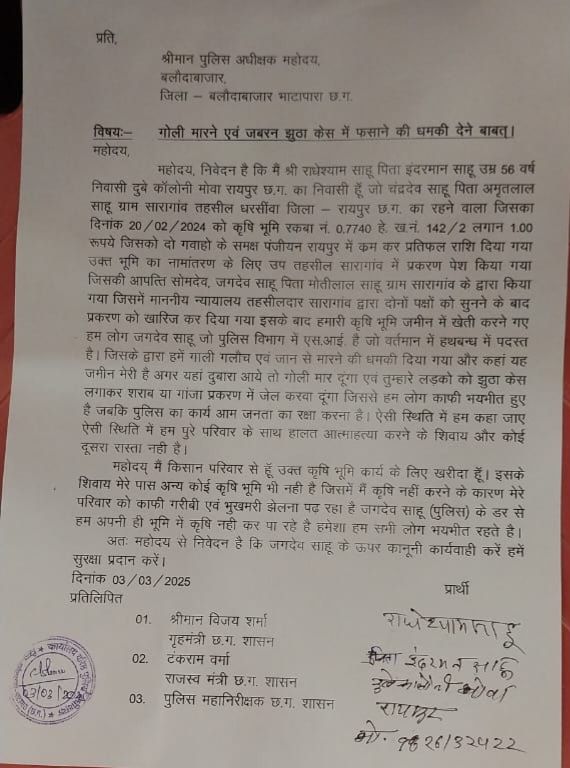 प्रति,
श्रीमान पुलिस अधीक्षक महोदय,
बलौदाबाजार,
जिला – बलौदाबाजार भाटापारा छ.ग.
विषयः– गोली मारने एवं जबरन झुठा केस में फसाने की धमकी देने बाबत्।
महोदय,
महोदय, निवेदन है कि मैं श्री राधेश्याम साहू पिता इंदरमान साहू उम्र 56 वर्ष
निवासी दुबे कॉलोनी मोवा रायपुर छ.ग. का निवासी हूँ जो चंद्रदेव साहू पिता अमृतलाल
साहू ग्राम सारागांव तहसील धरसींवा जिला – रायपुर छ.ग. का रहने वाला जिसका
दिनांक 20/02/2024 को कृषि भूमि रकबा नं. 0.7740 हे. ख.नं. 142/2 लगान 1.00
रूपये जिसको दो गवाहो के समक्ष पंजीयन रायपुर में कम कर प्रतिफल राशि दिया गया
उक्त भूमि का नामांतरण के लिए उप तहसील सारागांव में प्रकरण पेश किया गया
जिसकी आपत्ति सोमदेव, जगदेव साहू पिता मोतीलाल साहू ग्राम सारागांव के द्वारा किया
गया जिसमें माननीय न्यायालय तहसीलदार सारागांव द्वारा दोनों पक्षों को सुनने के बाद
प्रकरण को खारिज कर दिया गया इसके बाद हमारी कृषि भूमि जमीन में खेती करने गए
हम लोग जगदेव साहू जो पुलिस विभाग में एस.आई. है जो वर्तमान में हथबन्ध में पदस्त
है। जिसके द्वारा हमें गाली गलौच एवं जान से मारने की धमकी दिया गया और कहां यह
जमीन मेरी है अगर यहां दुबारा आये तो गोली मार दूंगा एवं तुम्हारे लड़को को झुठा केस
लगाकर शराब या गांजा प्रकरण में जेल करवा दूंगा जिससे हम लोग काफी भयभीत हुए
है जबकि पुलिस का कार्य आम जनता का रक्षा करना है। ऐसी स्थिति में हम कहा जाए
ऐसी स्थिति में हम पुरे परिवार के साथ हालत आत्माहत्या करने के शिवाय और कोई
दूसरा रास्ता नही है।
महोदय् मैं किसान परिवार से हूँ उक्त कृषि भूमि कार्य के लिए खरीदा हूँ। इसके
शिवाय मेरे पास अन्य कोई कृषि भूमि भी नही है जिसमें मैं कृषि नहीं करने के कारण मेरे
परिवार को काफी गरीबी एवं भुखमरी झेलना पढ़ रहा है जगदेव साहू (पुलिस) के डर से
हम अपनी ही भूमि में कृषि नही कर पा रहे है हमेशा हम सभी लोग भयभीत रहते है।
अतः महोदय से निवेदन है कि जगदेव साहू के ऊपर कानूनी कार्यवाही करें हमें
सुरक्षा प्रदान करें।
दिनांक 03/03/2025
प्रार्थी
प्रतिलिपित
01. श्रीमान विजय शर्मा
गृहमंत्री छ.ग. शासन
02. टंकराम वर्मा
राजस्व मंत्री छ.ग. शासन
03. पुलिस महानिरीक्षक छ.ग. शासन
राधेश्याम साहू
पिता इंदरमन साहू
दुबे कालोनी मोवा
रायपुर
मो.